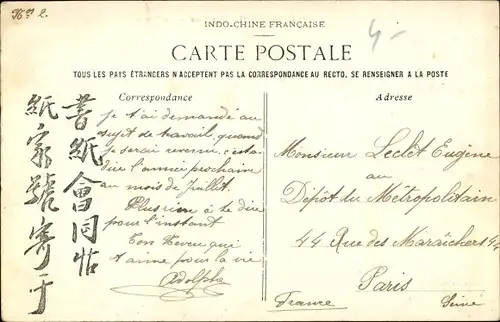 INDO-CHINE FRANÇAISE
4-
CARTE POSTALE
TOUS LES PAYS ÉTRANGERS N'ACCEPTENT PAS LA CORRESPONDANCE AU RECTO. SE RENSEIGNER A LA POSTE
Correspondance
je t'ai demandé au
sujet de travail, quand
je serai revenu, c'est à
dire l'année prochaine
au mois de Juillet.
Plus rien à te dire
pour l'instant
Ton Neveu qui
t'aime pour la vie
Adolphe
書紙會同帖
紙家號寄于
Adresse
Monsieur Leclet Eugène
au
Dépôt du Métropolitain
44 Rue des Maraîchers 44
Paris
France
Seine